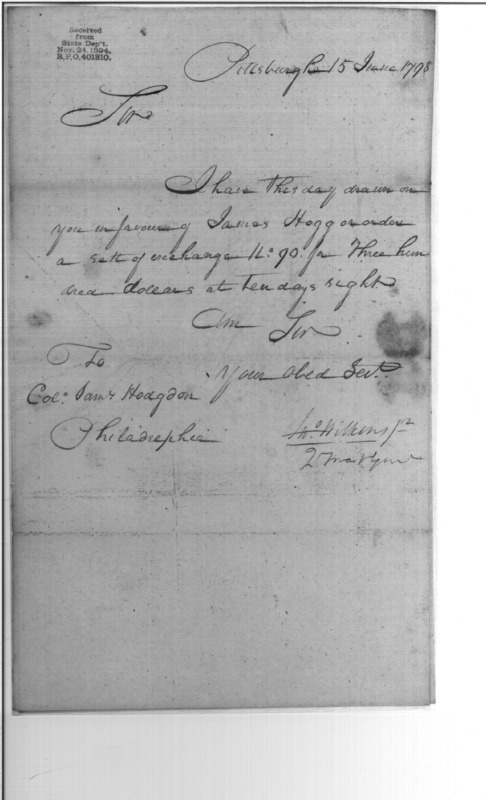 Received
from
State Dep't.
Nov. 24, 1894,
R.P.O. 401810.
Pittsburgh 15 June 1798
Sir
I have this day drawn on
you in favour of James Hogg or order
a sett of exchange No. 90. for Three hun
dred dollars at ten days sight
Am Sir
Your Obed Servt.
To
Colo. Saml. Hodgdon
Philadelphia
Jno. Wilkins Jr